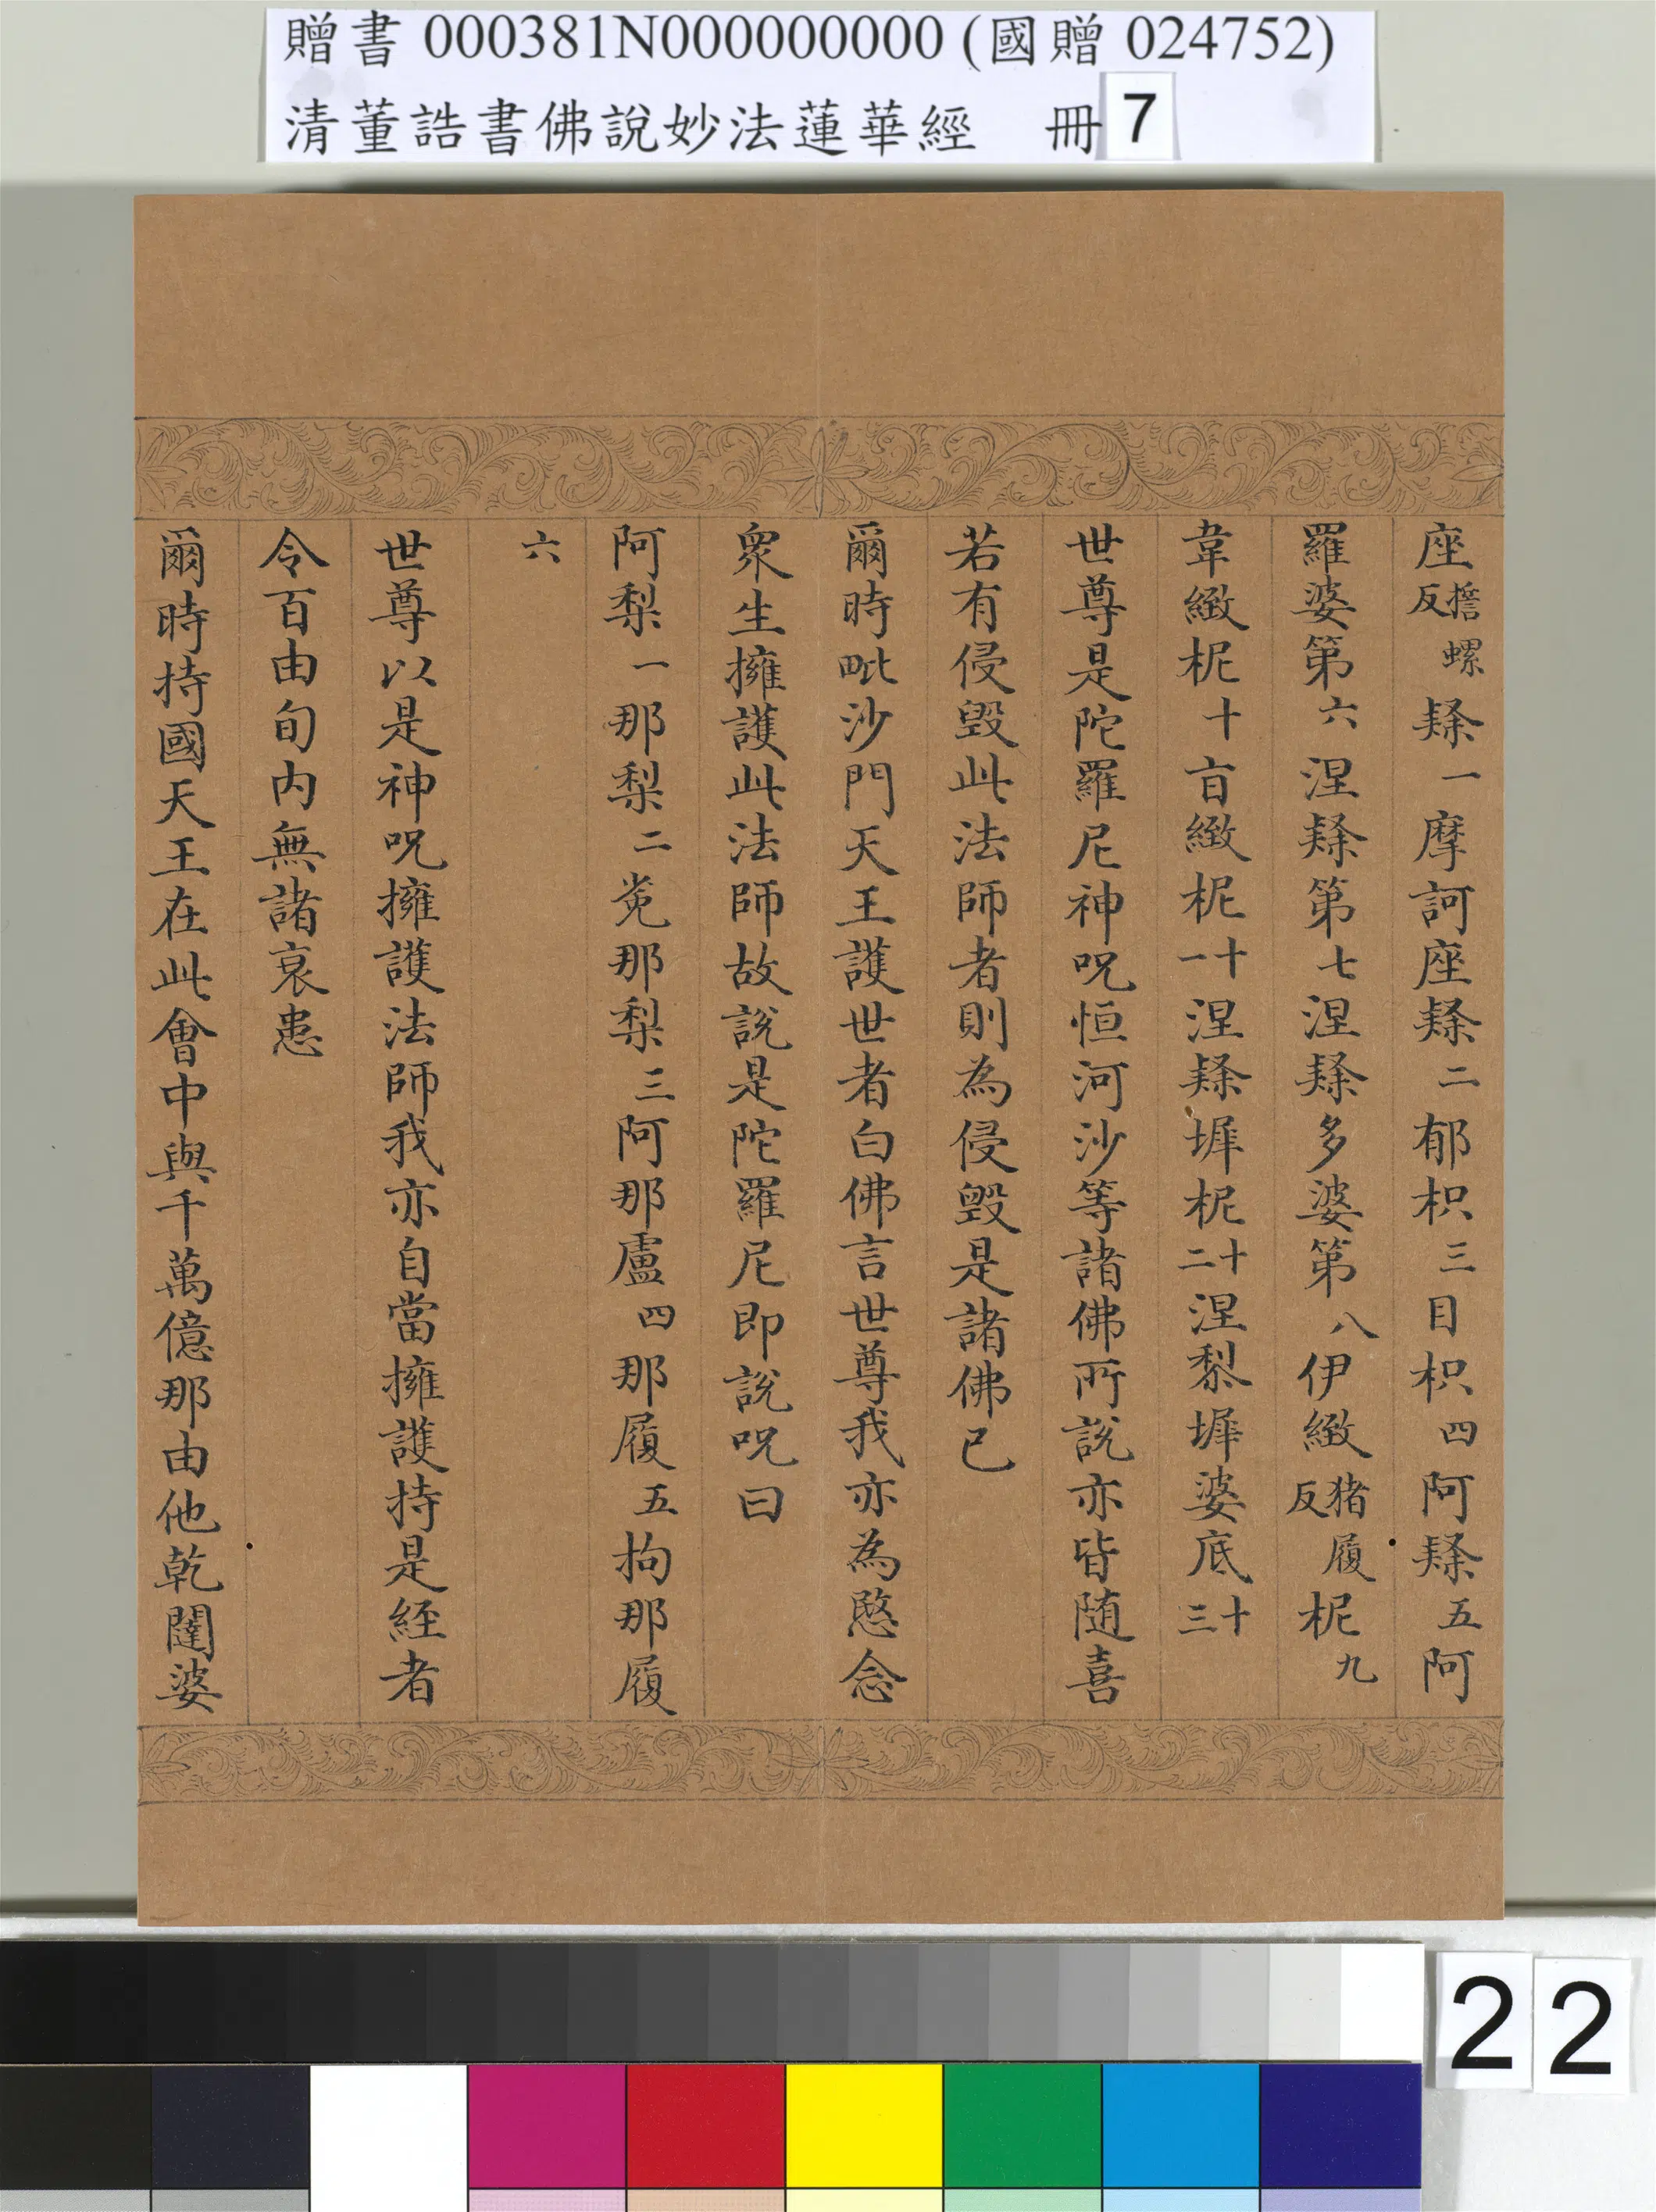 贈書 000381N000000000 (國贈 024752)
清董誥書佛說妙法蓮華經 冊 7
座擔螺反隸一摩訶座隸二郁枳三目枳四阿隸五阿
羅婆第六涅隸第七涅隸多婆第八伊緻猪履反柅九
韋緻柅十旨緻柅十一涅隸墀柅十二涅黎墀婆底十三
世尊是陀羅尼神呪恒河沙等諸佛所說亦皆随喜
若有侵毀此法師者則為侵毀是諸佛已
爾時毗沙門天王護世者白佛言世尊我亦為愍念
眾生擁護此法師故說是陀羅尼即說呪曰
阿梨一那梨二㝹那梨三阿那盧四那履五拘那履
六
世尊以是神呪擁護法師我亦自當擁護持是經者
令百由旬内無諸衰患
爾時持國天王在此會中與千萬億那由他乾闥婆
22